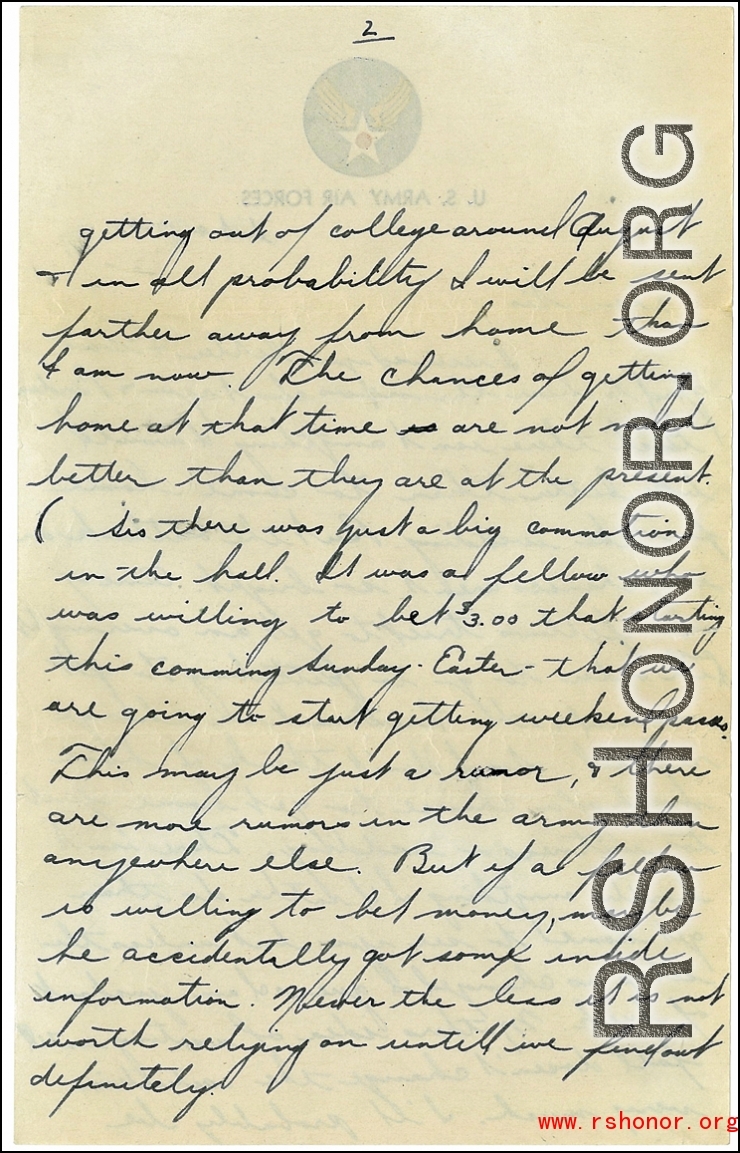 2
U. S. ARMY AIR FORCES
getting out of college around August
& in all probability I will be sent
farther away from home than
I am now. The chances of getting
home at that time are not much
better than they are at the present.
( Sis there was just a big commotion
in the hall. It was a fellow who
was willing to bet $3.00 that starting
this comming Sunday - Easter - that we
are going to start getting weekend passes.
This may be just a rumor, & there
are more rumors in the army than
anyewhere else. But if a fellow
is willing to bet money, maybe
he accidentally got some inside
information. Never the less it is not
worth relying on untill we find out
definitely.
RSHONOR.ORG
www.rshonor.org